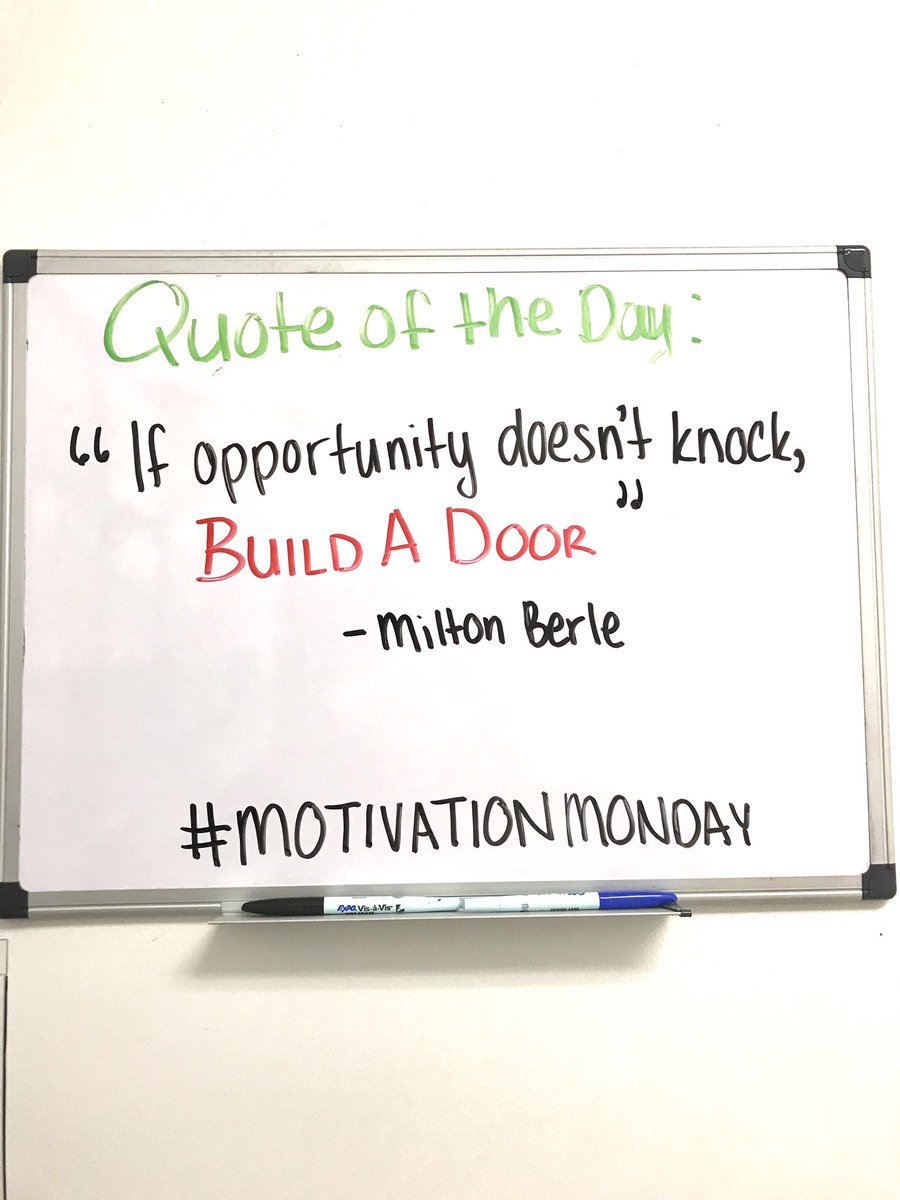 Quote of the Day:
“If opportunity doesn't knock,
BUILD A DOOR”
- Milton Berle
#MOTIVATIONMONDAY
EXPO Vis-à-Vis